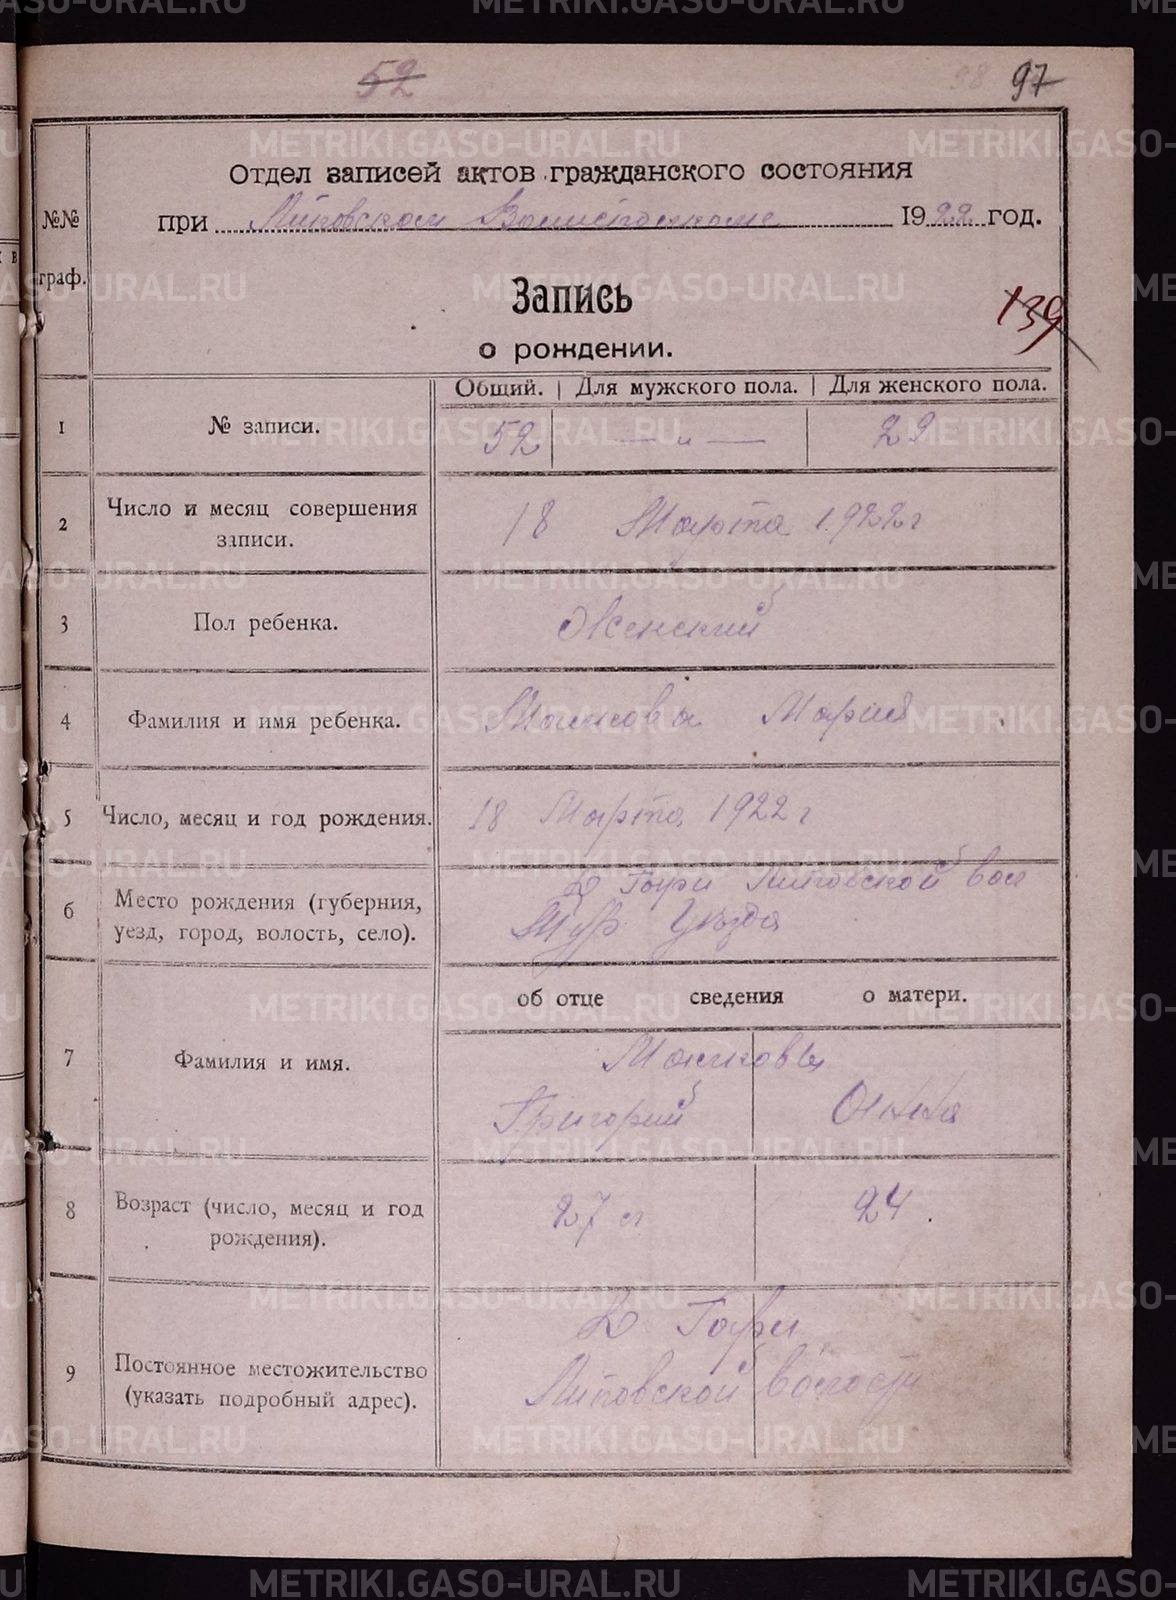 52
98 97
Отдел записей актов гражданского состояния
при Липовском Волисполкоме 1922 год.
№№
граф.
Запись
139
о рождении.
Общий. Для мужского пола. Для женского пола.
1 № записи. 52 — „ — 29
2 Число и месяц совершения
записи.
18 Марта 1922 г
3 Пол ребенка. Женский
4 Фамилия и имя ребенка. Мария
5 Число, месяц и год рождения. 18 Марта 1922 г
6 Место рождения (губерния,
уезд, город, волость, село).
Д Липовской вол
Уезда
об отце сведения о матери.
7 Фамилия и имя.
Григорий Анна
8 Возраст (число, месяц и год
рождения).
27 л 24
9 Постоянное местожительство
(указать подробный адрес).
Д
Липовской волости
METRIKI.GASO-URAL.RU